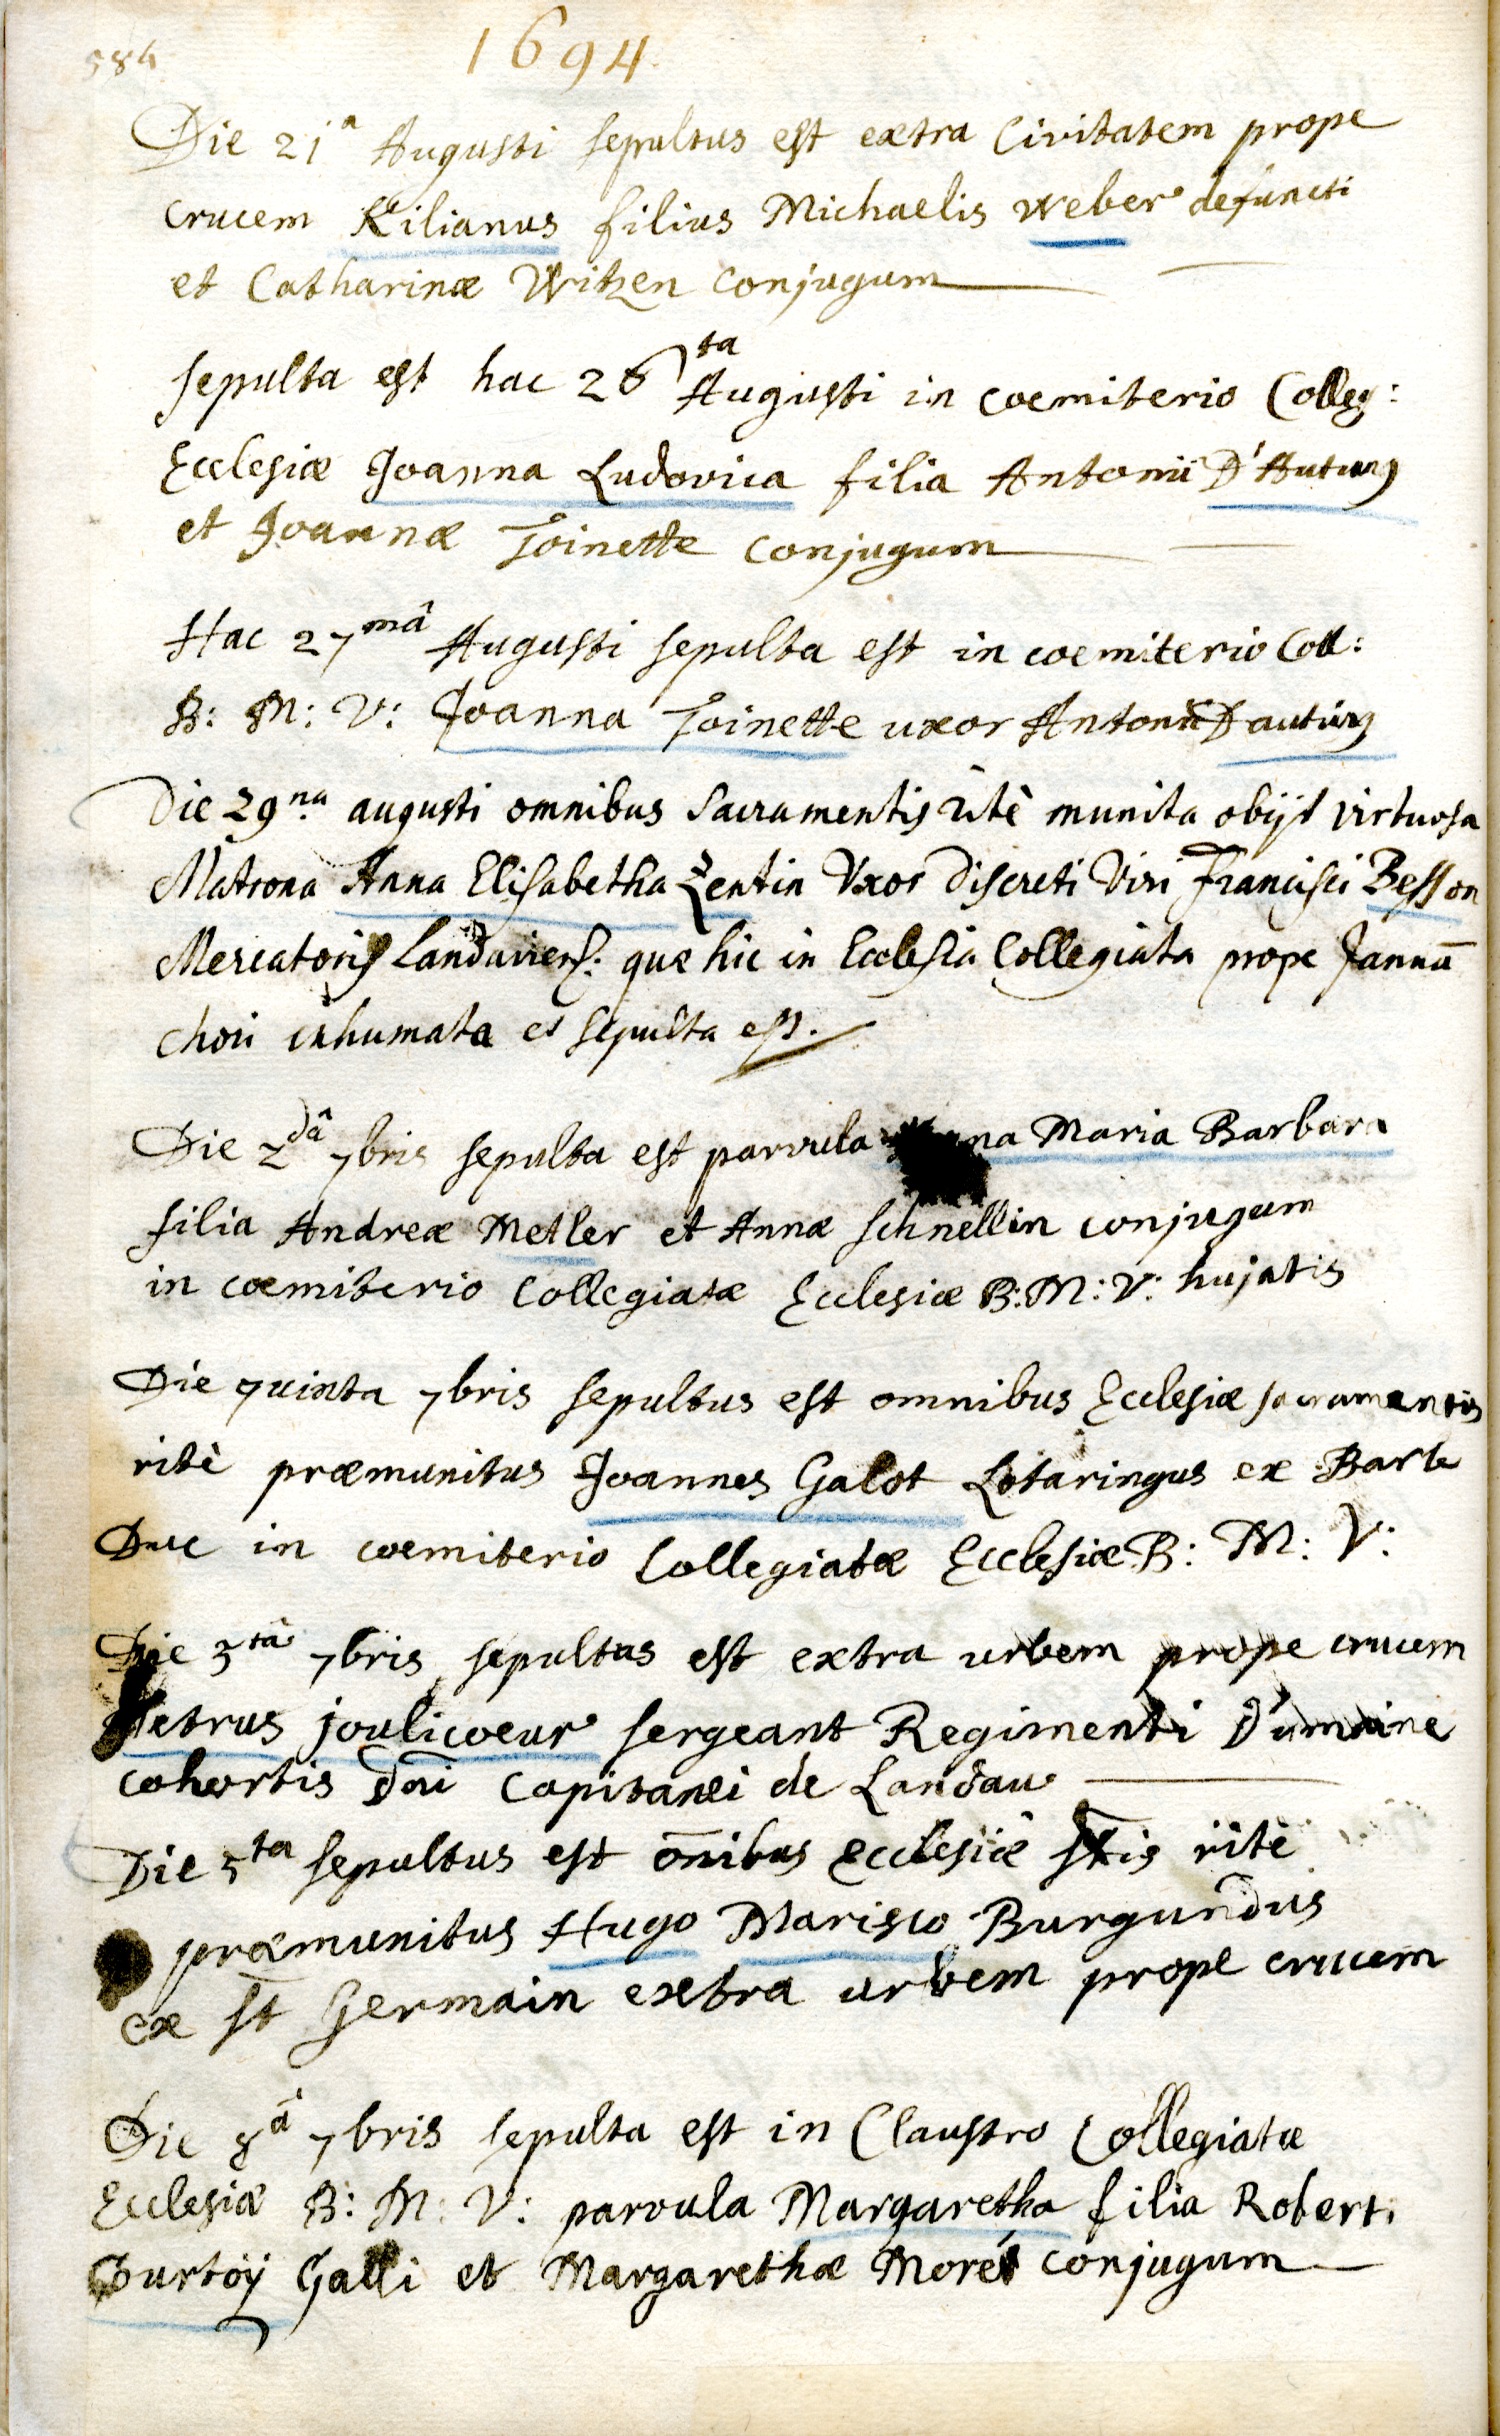 584
1694
Die 21ᵃ Augusti sepultus est extra Civitatem prope
crucem Kilianus filius Michaelis Weber defuncti
et Catharinæ Witzen conjugum
sepulta est hac 26ta Augusti in coemiterio Colleg:
Ecclesiæ Joanna Ludovica filia Antonii D'Autung
et Joannæ Toinette conjugum
Hac 27mâ Augusti sepulta est in coemiterio Coll:
B: M: V: Joanna Toinette uxor Antonii Dautung
Die 29na augusti omnibus Sacramentis ritè munita obijt virtuosa
Matrona Anna Elisabetha Zentin Uxor Discreti Viri Francisci Besson
Mercatoris Landaviens: quæ hic in Ecclesia Collegiata prope Januā
chori inhumata et sepulta est.
Die 2dâ 7bris sepulta est parvula na Maria Barbara
filia Andreæ Metler et Annæ Schnellin conjugum
in coemiterio Collegiatæ Ecclesiæ B: M: V: hujatis
Die quinta 7bris sepultus est omnibus Ecclesiæ sacramentis
ritè præmunitus Joannes Galot Lotaringus ex Barle
Duc in coemiterio Collegiatæ Ecclesiæ B: M: V:
Die 5tâ 7bris sepultus est extra urbem prope crucem
Petrus joulicoeur sergeant Regimenti D'umaine
cohortis Dni Capitanei de Landau
Die 5ta sepultus est onibus Ecclesiæ stis ritè
præmunitus Hugo Marisco Burgundus
ex St Germain extra urbem prope crucem
Die 8â 7bris sepulta est in Claustro Collegiatæ
Ecclesiæ B: M: V: parvula Margaretha filia Roberti
Courtoÿ Galli et Margarethæ Moret conjugum